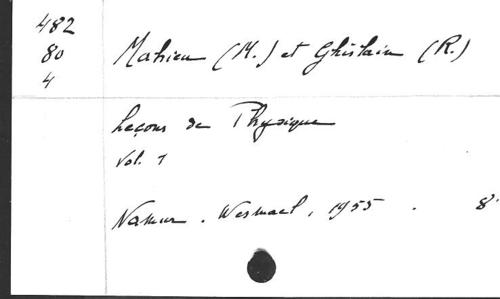 482
80
4
Mahieu (M.) et Ghislain (R.)
Leçons de Physique
Vol. 1
Namur. Wesmael, 1955. 8°